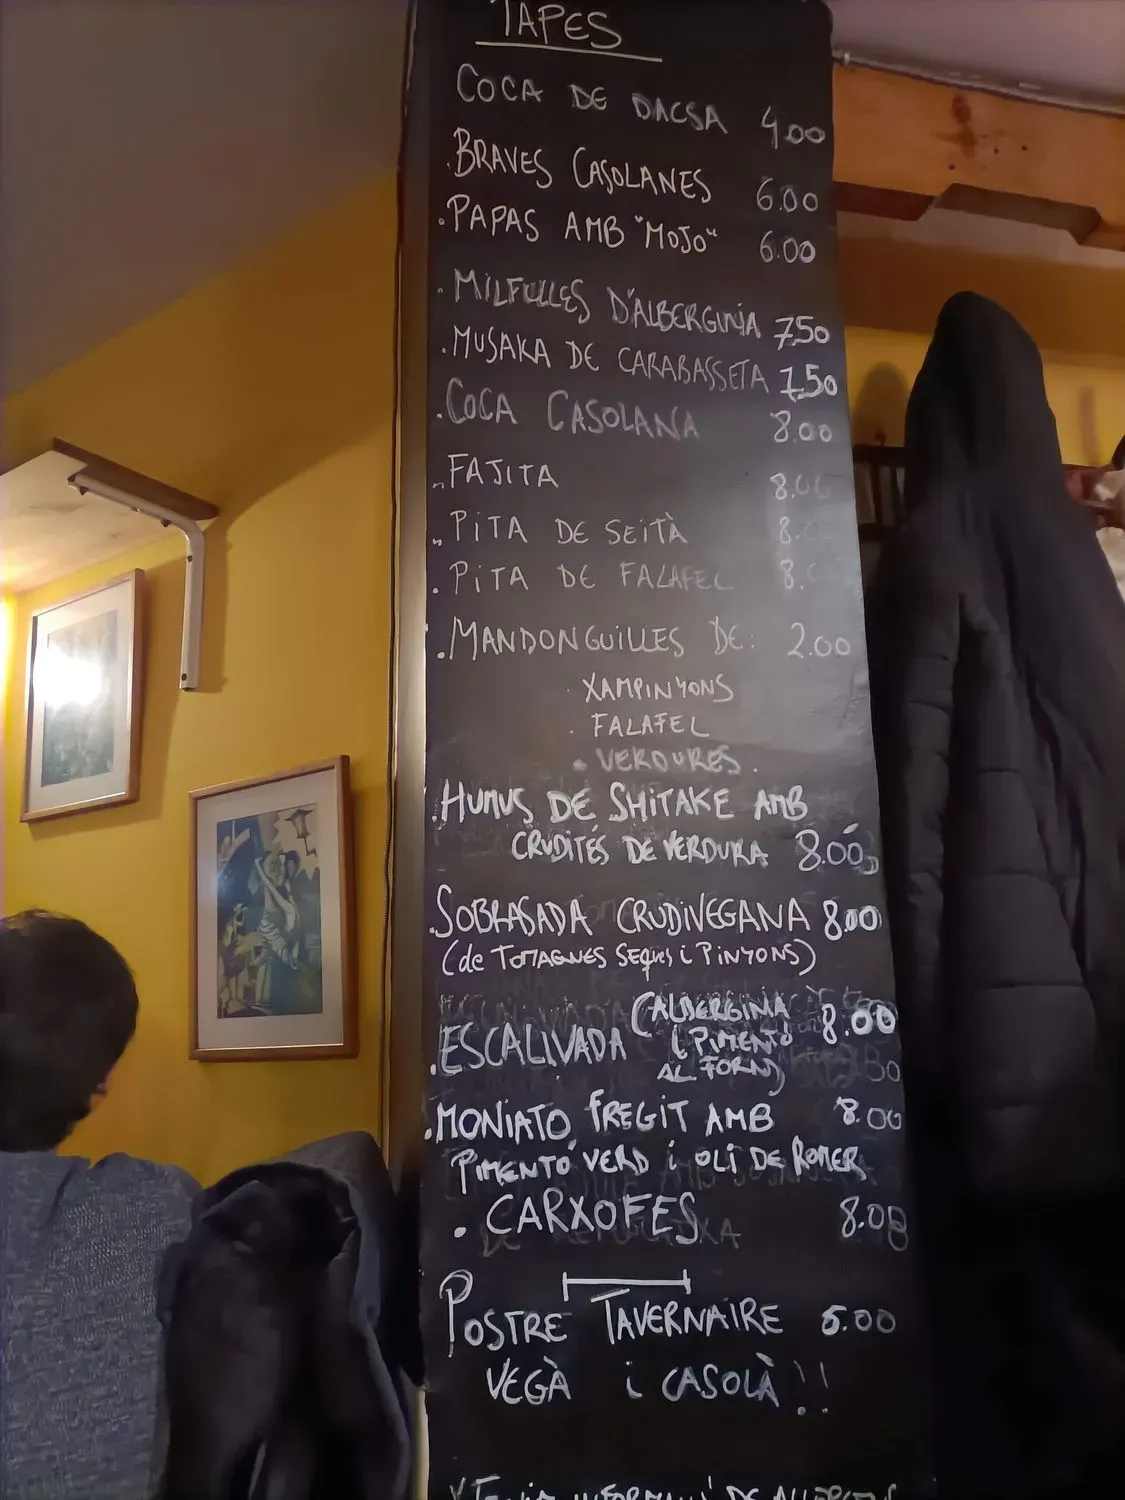 TAPES
COCA DE DACSA 4.00
.BRAVES CASOLANES 6.00
.PAPAS AMB "MOJO" 6.00
.MILFULLES D'ALBERGINIA 7,50
.MUSAKA DE CARABASSETA 7,50
.COCA CASOLANA 8.00
.FAJITA 8.00
.PITA DE SEITÀ 8.
.PITA DE FALAFEL 8.
.MANDONGUILLES DE: 2.00
. XAMPINYONS
. FALAFEL
. VERDURES.
.HUMUS DE SHITAKE AMB
CRUDITÉS DE VERDURA 8.00
.SOBRASADA CRUDIVEGANA 8.00
(de TOMAQUES SEQUES i PINYONS)
.ESCALIVADA (ALBERGINIA 8.00
i PIMENTO
AL FORN)
.MONIATO FREGIT AMB 8.00
PIMENTO VERD i OLI DE ROMER
. CARXOFES 8.00
POSTRE TAVERNAIRE 5.00
VEGÀ i CASOLÀ!!
INFORMACIÓ DE